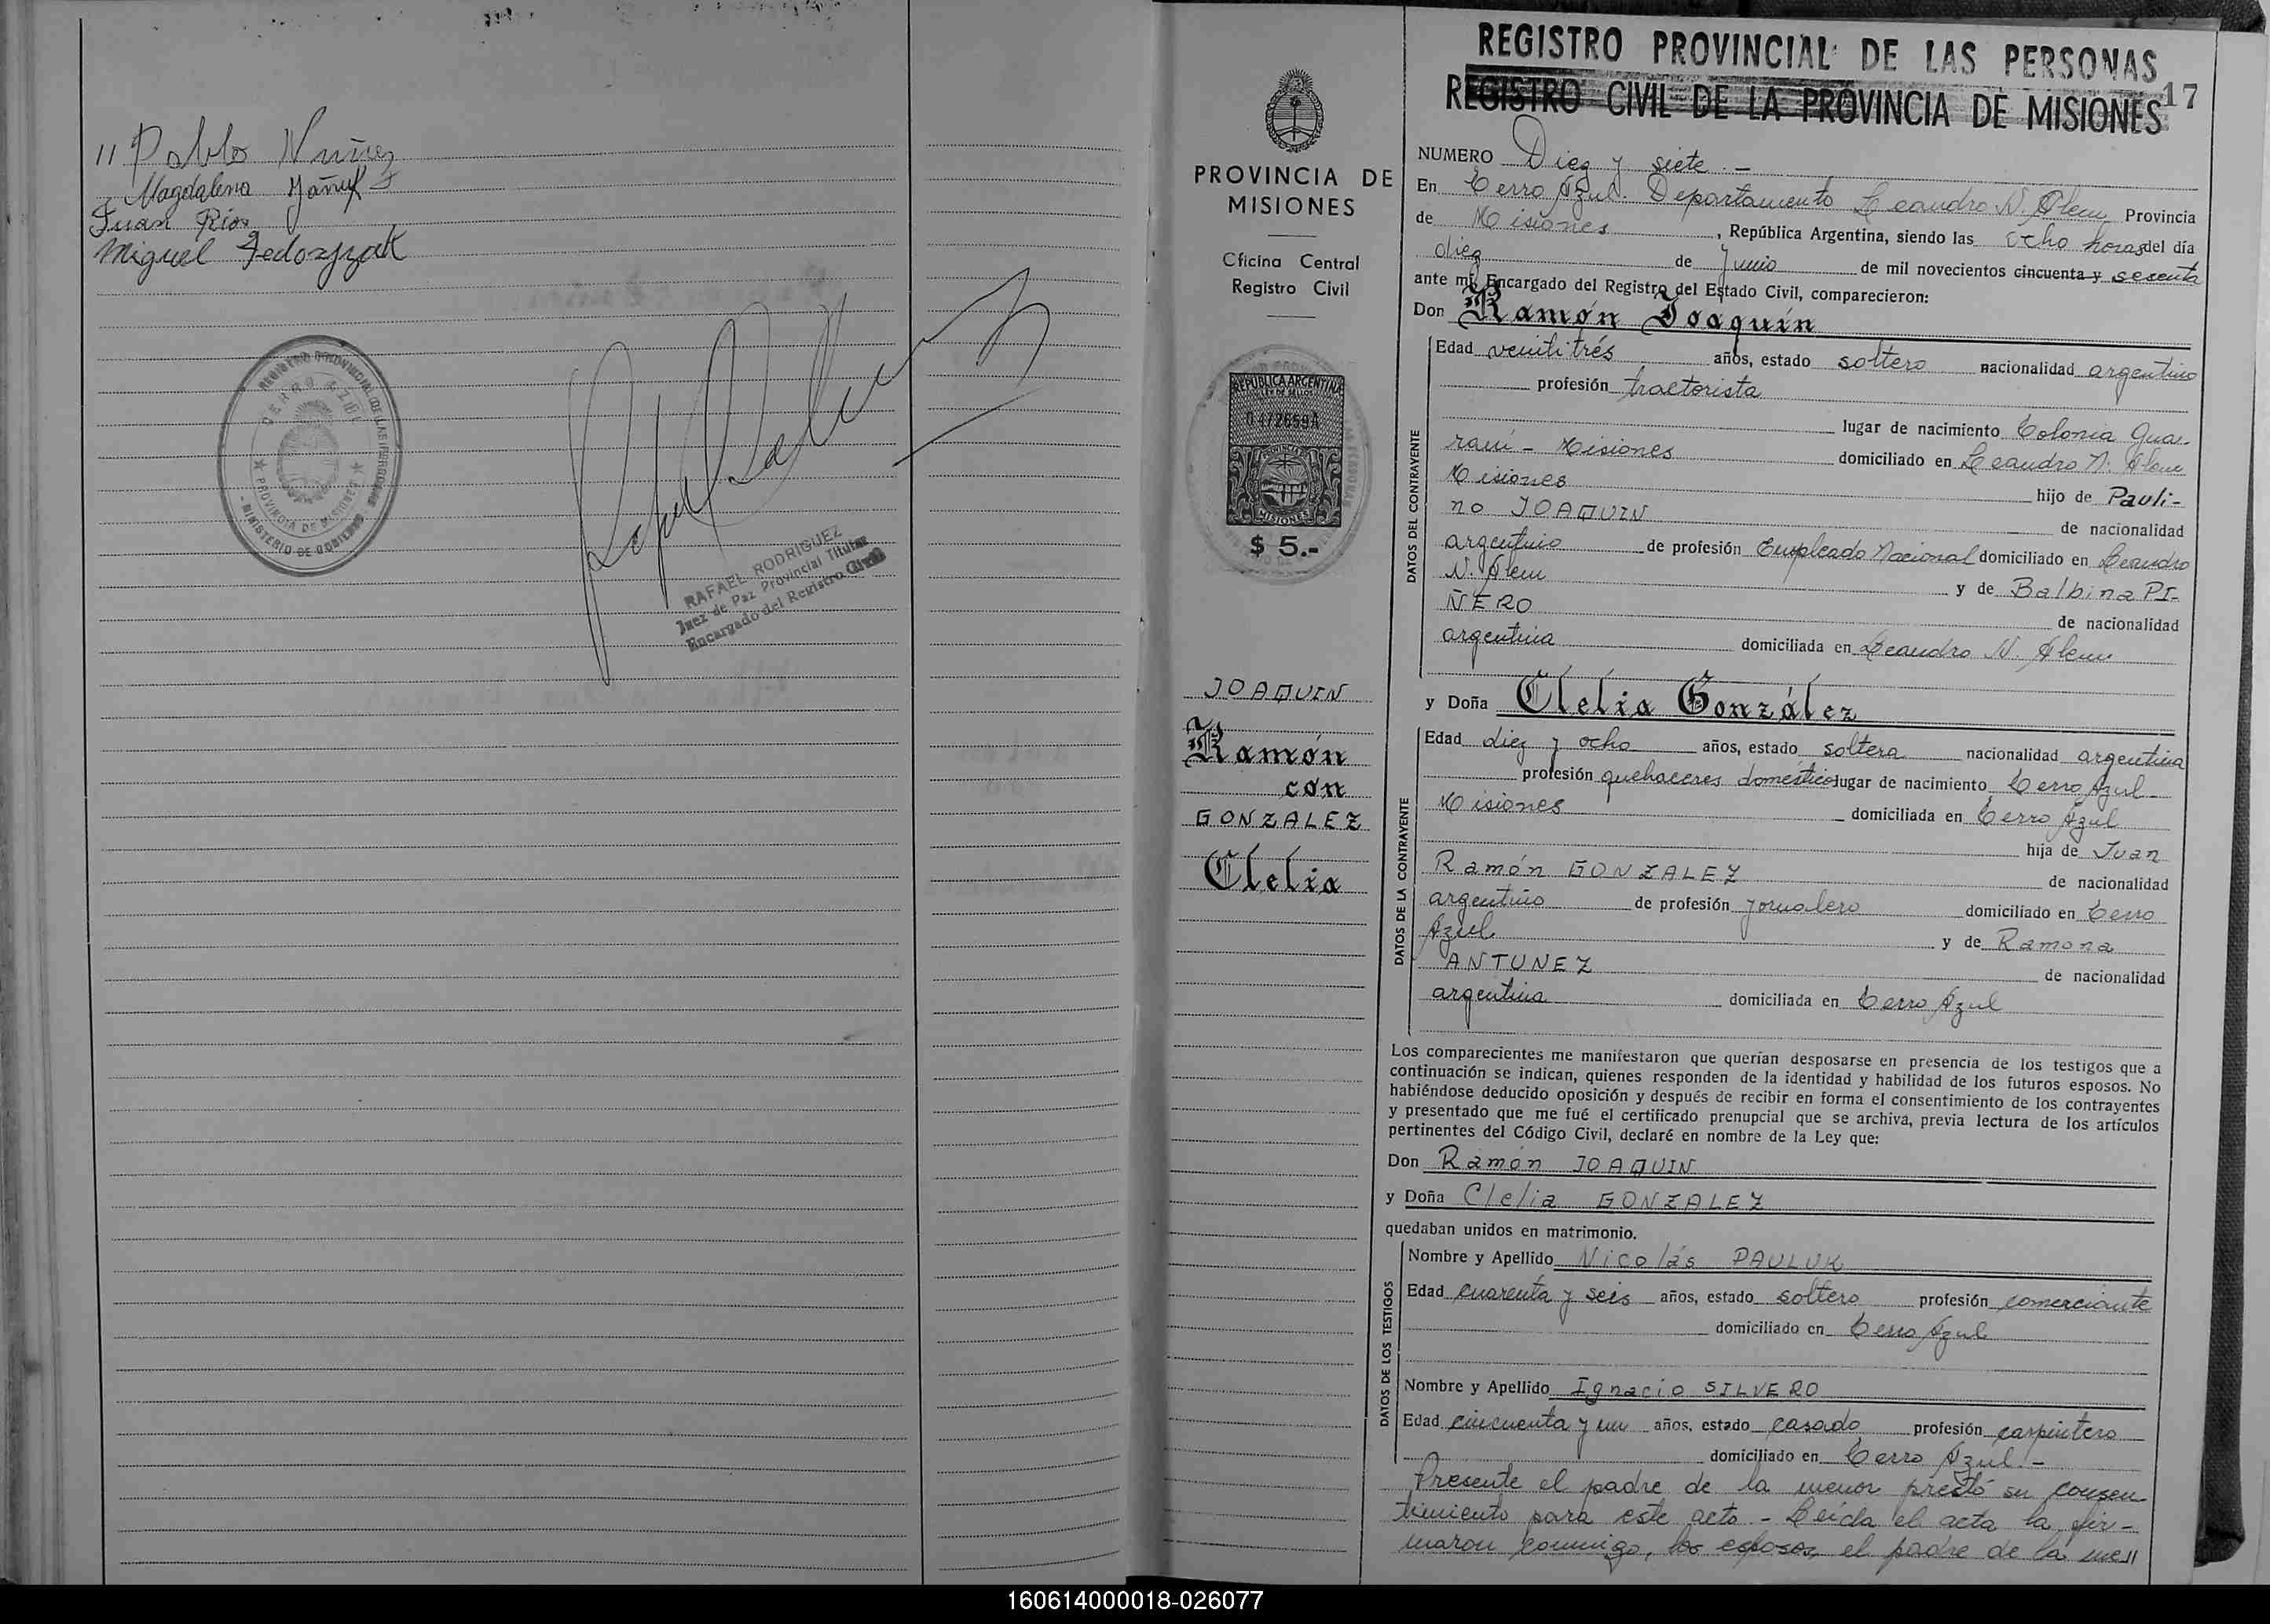 11 Pablo Nuñez
Magdalena Yañuk
Juan Ríos
Miguel Fedozzak
REGISTRO PROVINCIAL DE LAS PERSONAS
CERRO AZUL
PROVINCIA DE MISIONES
MINISTERIO DE GOBIERNO
RAFAEL RODRIGUEZ
Juez de Paz Provincial Titular
Encargado del Registro Civil
PROVINCIA DE
MISIONES
Oficina Central
Registro Civil
REPUBLICA ARGENTINA
LEY DE SELLOS
0472659A
PROVINCIA DE
MISIONES
$ 5.-
JOAQUIN
Ramón
con
GONZALEZ
Clelia
REGISTRO PROVINCIAL DE LAS PERSONAS
REGISTRO CIVIL DE LA PROVINCIA DE MISIONES
17
NUMERO Diez y siete.-
En Cerro Azul. Departamento Leandro N. Alem Provincia
de Misiones, República Argentina, siendo las ocho horas del día
diez de Junio de mil novecientos cincuenta y sesenta
ante mí, Encargado del Registro del Estado Civil, comparecieron:
Don Ramón Joaquín
Edad veintitrés años, estado soltero nacionalidad argentino
profesión tractorista
lugar de nacimiento Colonia Gua-
raní - Misiones domiciliado en Leandro N. Alem
Misiones hijo de Pauli-
no JOAQUIN de nacionalidad
argentino de profesión Empleado Nacional domiciliado en Leandro
N. Alem y de Balbina PI-
ÑERO de nacionalidad
argentina domiciliada en Leandro N. Alem
DATOS DEL CONTRAYENTE
y Doña Clelia González
Edad diez y ocho años, estado soltera nacionalidad argentina
profesión quehaceres domésticos lugar de nacimiento Cerro Azul-
Misiones domiciliada en Cerro Azul
hija de Juan
Ramón GONZALEZ de nacionalidad
argentino de profesión jornalero domiciliado en Cerro
Azul y de Ramona
ANTUNEZ de nacionalidad
argentina domiciliada en Cerro Azul
DATOS DE LA CONTRAYENTE
Los comparecientes me manifestaron que querían desposarse en presencia de los testigos que a
continuación se indican, quienes responden de la identidad y habilidad de los futuros esposos. No
habiéndose deducido oposición y después de recibir en forma el consentimiento de los contrayentes
y presentado que me fué el certificado prenupcial que se archiva, previa lectura de los artículos
pertinentes del Código Civil, declaré en nombre de la Ley que:
Don Ramón JOAQUIN
y Doña Clelia GONZALEZ
quedaban unidos en matrimonio.
Nombre y Apellido Nicolás PAULUK
Edad cuarenta y seis años, estado soltero profesión comerciante
domiciliado en Cerro Azul
Nombre y Apellido Ignacio SILVERO
Edad cincuenta y un años, estado casado profesión carpintero
domiciliado en Cerro Azul.-
DATOS DE LOS TESTIGOS
Presente el padre de la menor prestó su consen-
timiento para este acto.- Leída el acta la fir-
maron conmigo, los esposos, el padre de la me//
160614000018-026077